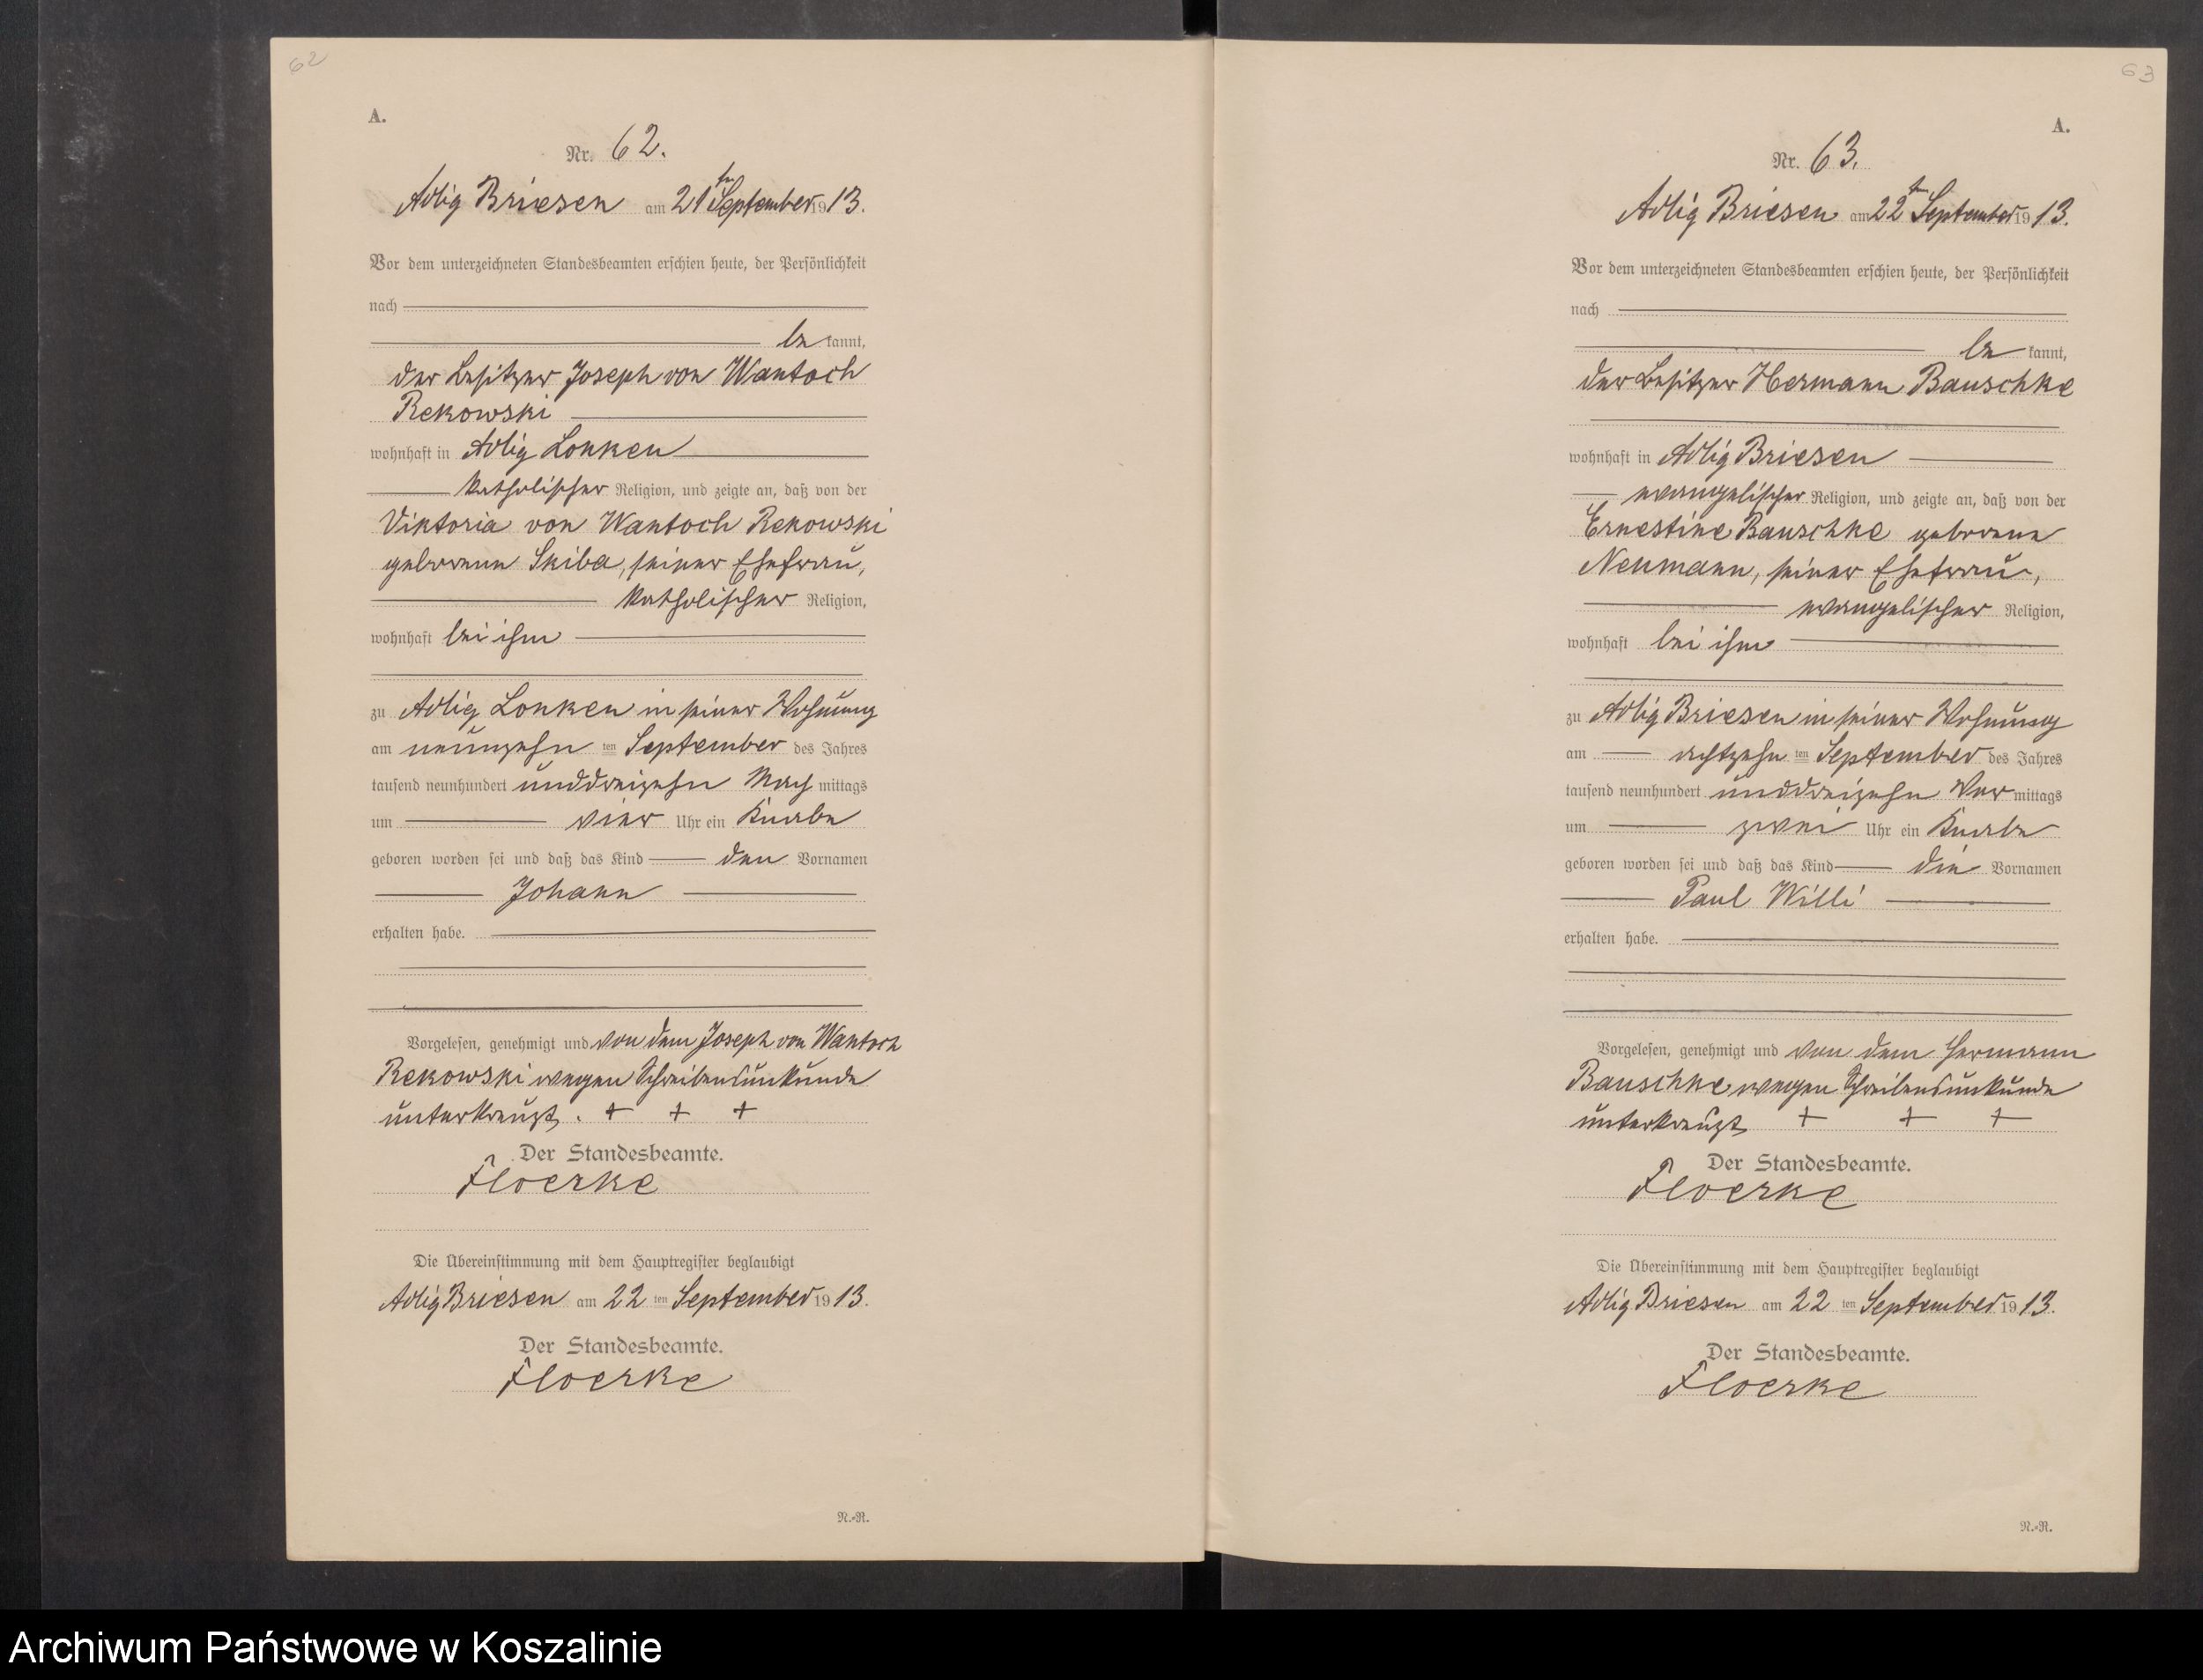 62
A.
Nr. 62.
Adlig Briesen am 21ten September 1913.
Vor dem unterzeichneten Standesbeamten erschien heute, der Persönlichkeit
nach
be kannt,
der Besitzer Joseph von Wantoch
Rekowski
wohnhaft in Adlig Lonken
katholischer Religion, und zeigte an, daß von der
Viktoria von Wantoch Rekowski
geborenen Skiba, seiner Ehefrau,
katholischer Religion,
wohnhaft bei ihm
zu Adlig Lonken in seiner Wohnung
am neunzehn ten September des Jahres
tausend neunhundert unddreizehn Nach mittags
um vier Uhr ein Knabe
geboren worden sei und daß das Kind den Vornamen
Johann
erhalten habe.
Vorgelesen, genehmigt und von dem Joseph von Wantoch
Rekowski wegen Schreibensunkunde
unterkreuzt. + + +
Der Standesbeamte.
Floerke
Die Übereinstimmung mit dem Hauptregister beglaubigt
Adlig Briesen am 22 ten September 1913.
Der Standesbeamte.
Floerke
N.-R.
63
A.
Nr. 63.
Adlig Briesen am 22t September 1913.
Vor dem unterzeichneten Standesbeamten erschien heute, der Persönlichkeit
nach
be kannt,
der Besitzer Hermann Bauschke
wohnhaft in Adlig Briesen
evangelischer Religion, und zeigte an, daß von der
Ernestine Bauschke geborene
Neumann, seiner Ehefrau,
evangelischer Religion,
wohnhaft bei ihm
zu Adlig Briesen in seiner Wohnung
am achtzehn ten September des Jahres
tausend neunhundert unddreizehn Vor mittags
um zwei Uhr ein Knabe
geboren worden sei und daß das Kind die Vornamen
Paul Willi
erhalten habe.
Vorgelesen, genehmigt und von dem Hermann
Bauschke wegen Schreibensunkunde
unterkreuzt + + +
Der Standesbeamte.
Floerke
Die Übereinstimmung mit dem Hauptregister beglaubigt
Adlig Briesen am 22 ten September 1913.
Der Standesbeamte.
Floerke
N.-R.
Archiwum Państwowe w Koszalinie